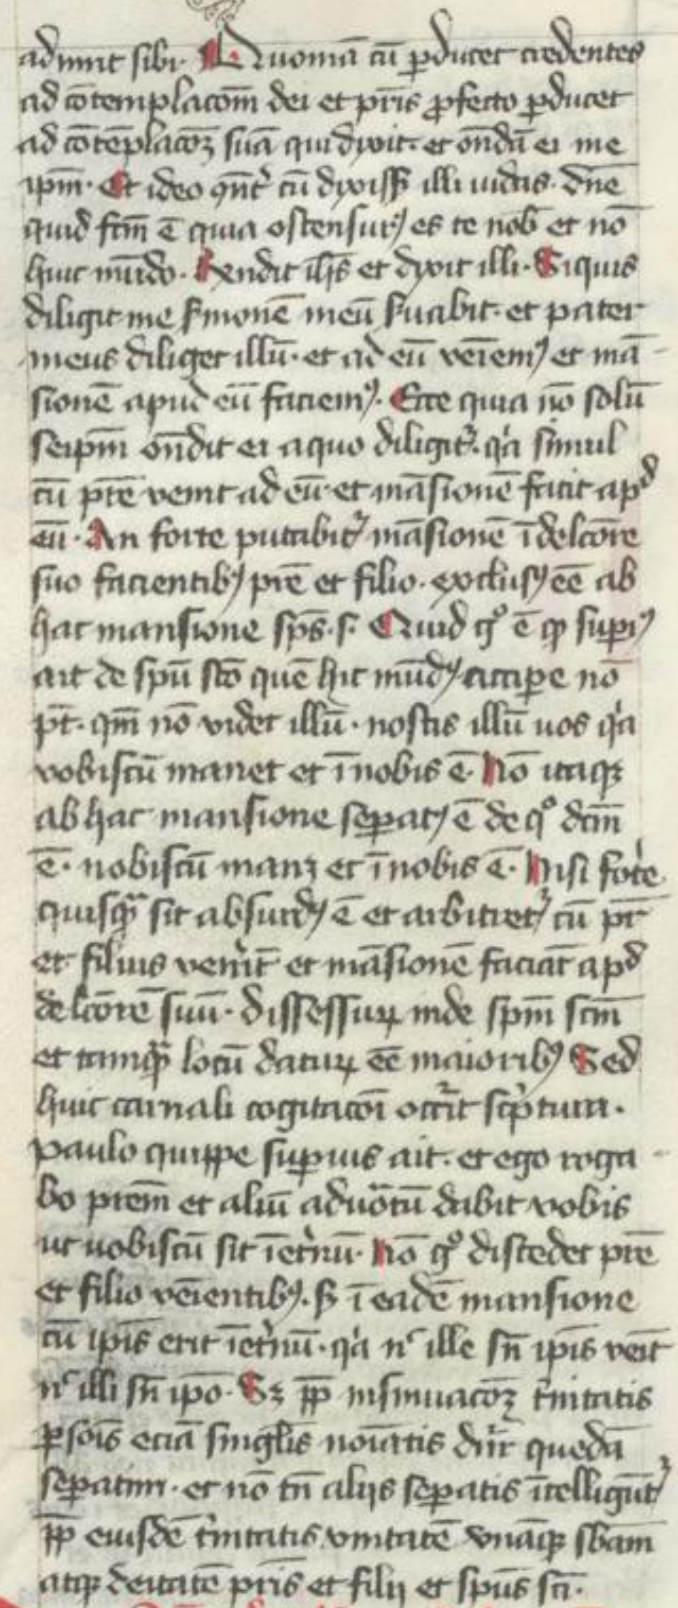 adimit sibi. Quoniā cū ꝑducet credentes
ad cōtemplacōm dei et pr̄is ꝓfecto ꝑducet
ad cōtēplacōꝫ suā qui dixit. et ondā ei me
ipm̄. Et ideo qn̄t cū dixiss illi iudas. dn̄e
quid fcm̄ ē quia ostensurꝰ es te nob et nō
huic mūdo. Rn̄dit ih̄s et dixit illi. Siquis
diligit me ẜmonē meū ẜuabit. et pater
meus diliget illū. et ad eū veniemꝰ et mā-
sionē apud eū faciemꝰ. Ecce quia nō solū
seipm̄ on̄dit ei a quo diligit᷑. qͥa simul
cū pr̄e venit ad eū. et māsionē facit apᵈ
eū. An forte putabit᷑ māsionē ī dilc̄ore
suo facientibꝰ pr̄e et filio. exclusꝰ eē ab
hac mansione sps̄. s. Quid gͦ ē qꝫ supiꝰ
ait de spū scō quē hic mūdꝰ accipe nō
pt̄. qm̄ nō videt illū. nostis illū uos qͥa
vobiscū manet et ī nobis ē. Nō itaqꝫ
ab hac mansione sepatꝰ ē de qͦ dcm̄
ē. nobiscū manꝫ et ī nobis ē. Nisi forte
quisqᷓ sit absurdꝰ ē et arbitret᷑ cū pr̄
et filius venīt et māsionē faciāt apᵈ
dilc̄orē suū. dissessuꝝ inde spm̄ scm̄
et tamqᷓ locū datuꝝ eē maioribꝰ Sed
huic carnali cogitacōi occ̄rit sc̄ptura.
paulo quippe supius ait. et ego roga-
bo pr̄em et aliū aduōtū dabit vobis
ut uobiscū sit ī et̄nū. Nō gͦ discedet pr̄e
et filio venientibꝰ. ẜ ī eadē mansione
cū ipīs erit ī et̄nū. qͥa nᶜ ille sn̄ ipīs venit
nᶜ illi sn̄ ipō. Sꝫ ꝓp insinuacōꝫ t̄nitatis
ꝑsoīs eciā singl̄is noīatis dn̄r quedā
sepatim. et nō tn̄ alijs sepatis ītelligūt᷑
ꝓp eiusdē t̄nitatis vnitatē vnāqꝫ sb̄am
atqꝫ deitatē pr̄is et filij et spūs sci.